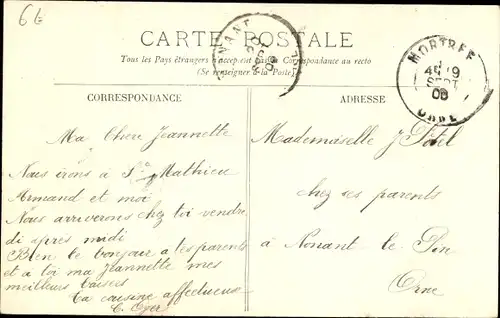 6E
CARTE POSTALE
Tous les Pays étrangers n'acceptent pas la Correspondance au recto
(Se renseigner à la Poste)
NONANT
MORTRÉE
4E 9
SEPT
08
ORNE
CORRESPONDANCE
Ma Chere Jeannette
Nous irons à St Mathieu
Armand et moi
Nous arriverons chez toi vendre
di après midi
Bien le bonjour a tes parents
et a toi ma Jeannette mes
meilleurs baises
ta cousine affectueuse
C. Oger
ADRESSE
Mademaselle J
chez ses parents
à Nonant le Pin
Orne